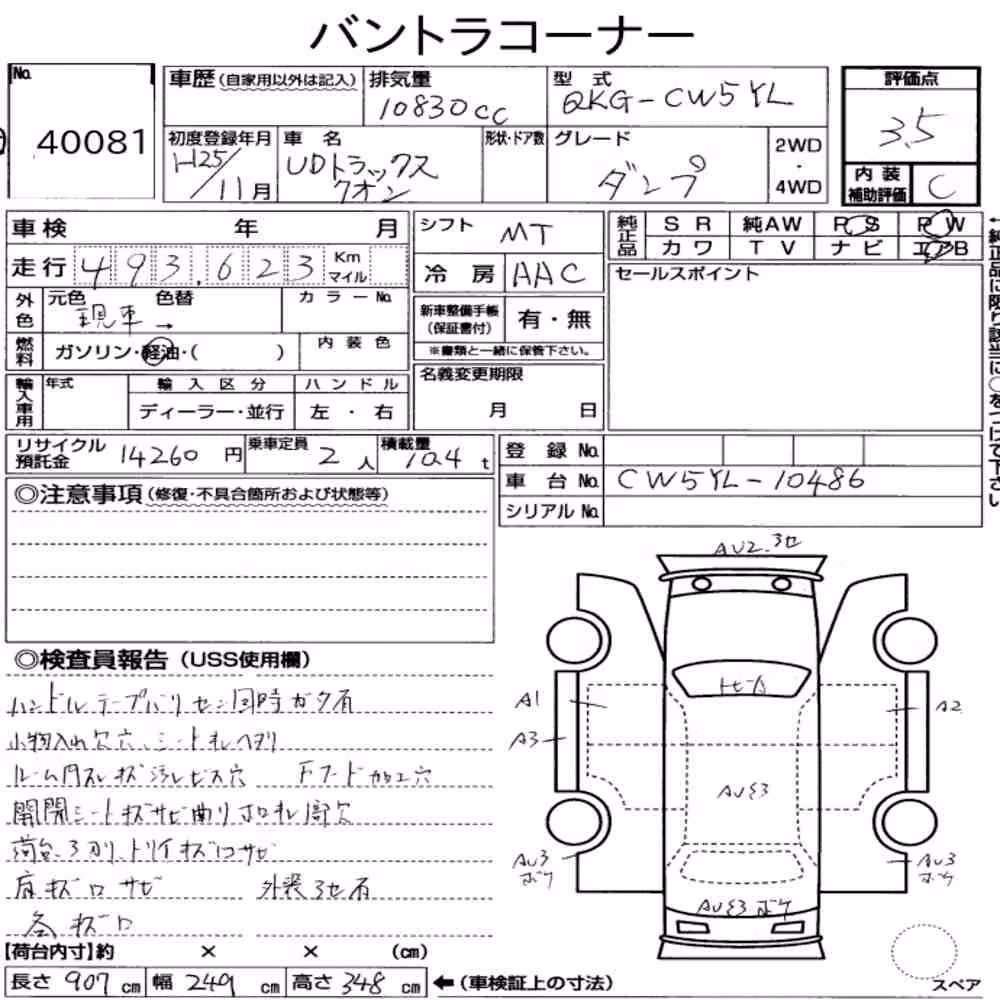 バントラコーナー
No. 40081
車歴 (自家用以外は記入)
排気量 10830cc
型式 QKG-CW5YL
評価点 3.5
初度登録年月 H25/11月
車名 UDトラックス クオン
形状・ドア数
グレード ダンプ
2WD・4WD
内装補助評価 C
車検 年 月
シフト MT
純正品 SR 純AW PS PW
カワ TV ナビ エアB
走行 493,623 Km マイル
冷房 AAC
セールスポイント
外色 元色 現車→ 色替 カラーNo.
新車整備手帳(保証書付) 有・無
※書類と一緒に保管下さい。
燃料 ガソリン・軽油・( ) 内装色
名義変更期限 月 日
輸入車用 年式 輸入区分 ハンドル
ディーラー・並行 左・右
←純正品に限り該当に○をつけて下さい
リサイクル預託金 14260円
乗車定員 2人
積載量 10.4t
登録No.
車台No. CW5YL-10486
シリアルNo.
◎注意事項(修復・不具合箇所および状態等)
◎検査員報告(USS使用欄)
小物入れ欠穴、シート
ルーム内スレキズ汚レビス穴 Fフード加工穴
開閉シートキズサビ曲リ
床キズ
各キズ
AU2.3
A1
A2
A3
AU23
AU3 ボケ
AU3 ボケ
AU23 ボケ
スペア
【荷台内寸】約 × × (cm)
長さ 907cm 幅 249cm 高さ 348cm ←(車検証上の寸法)